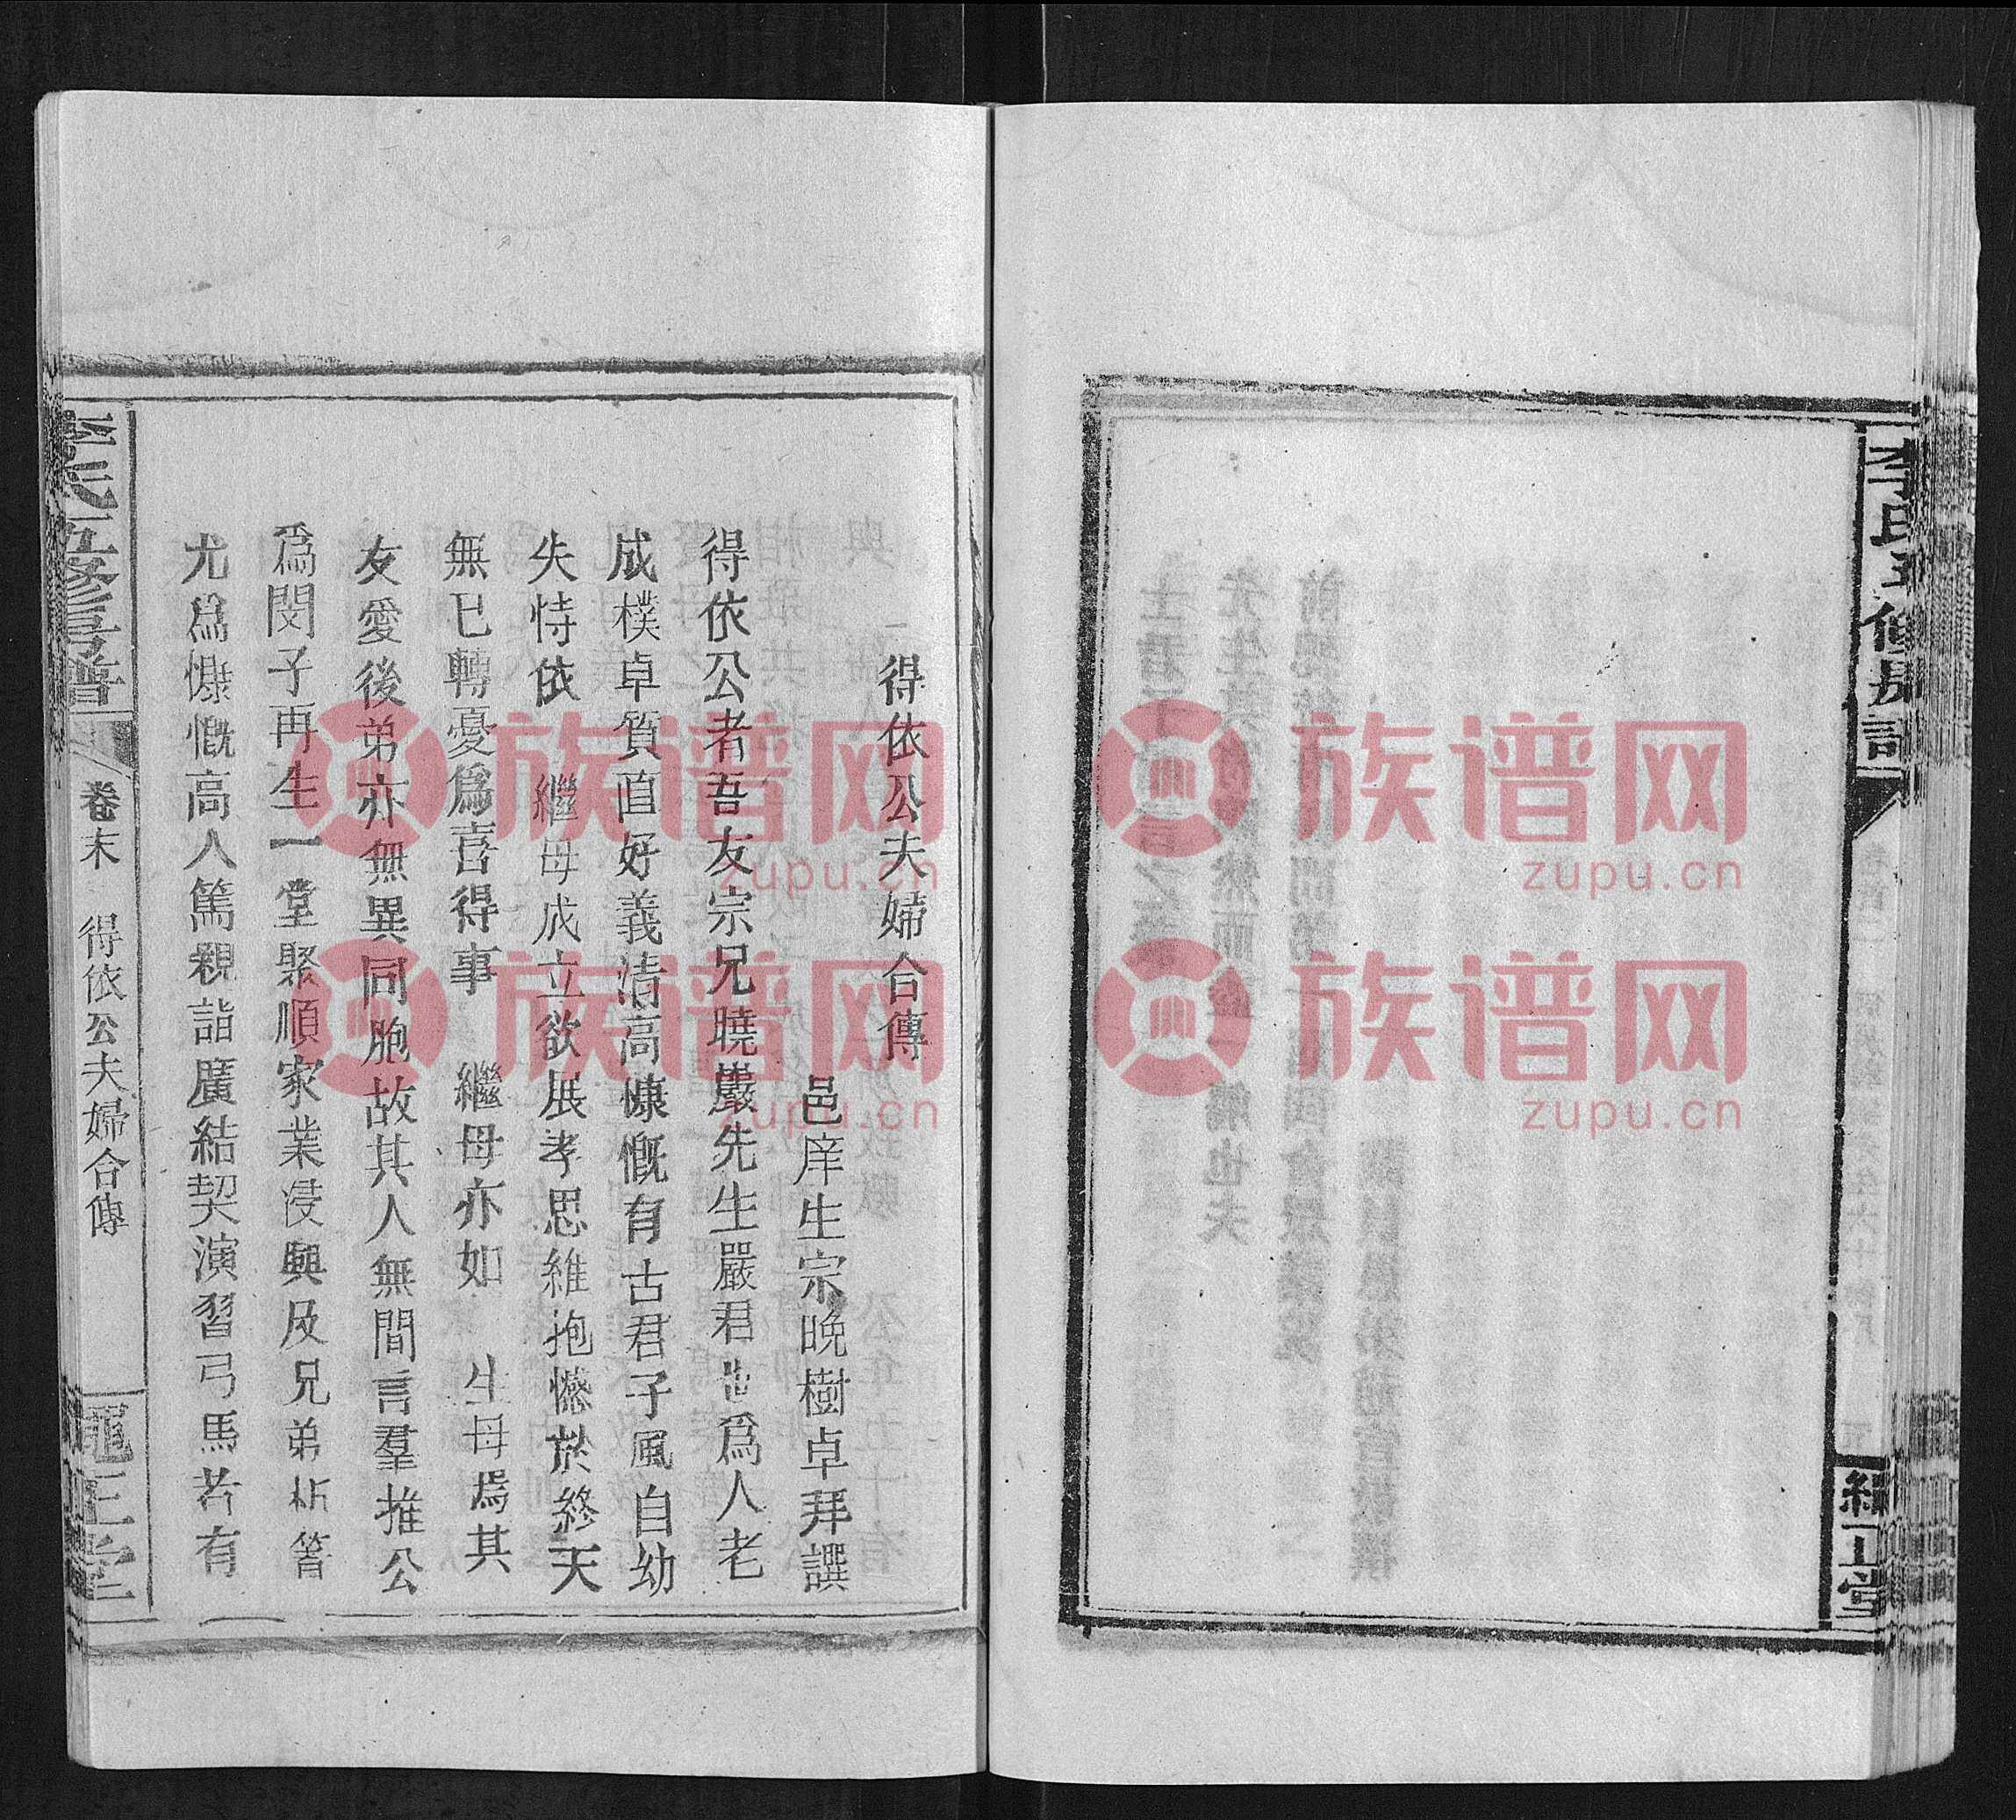 得依公夫婦合傳
邑庠生宗晚樹卓拜譔
得依公者吾友宗兄曉巖先生嚴君也爲人老
成樸卓質直好義清高慷慨有古君子風自幼
失恃依 繼母成立欲展孝思維抱憾於終天
無已轉憂爲喜得事 繼母亦如 生母焉其
友愛後弟亦無異同胞故其人無間言羣推公
爲閔子再生一堂聚順家業浸興及兄弟析箸
尤爲慷慨高人篤親誼廣結契演習弓馬若有
李氏五修房譜
卷末
得依公夫婦合傳
正堂
族谱网
zupu.cn
族谱网
zupu.cn
族谱网
zupu.cn
族谱网
zupu.cn